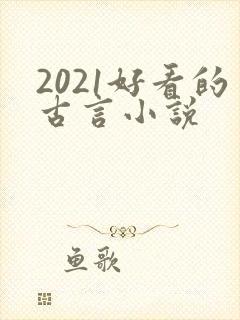 2021好看的
古言小说
鱼歌